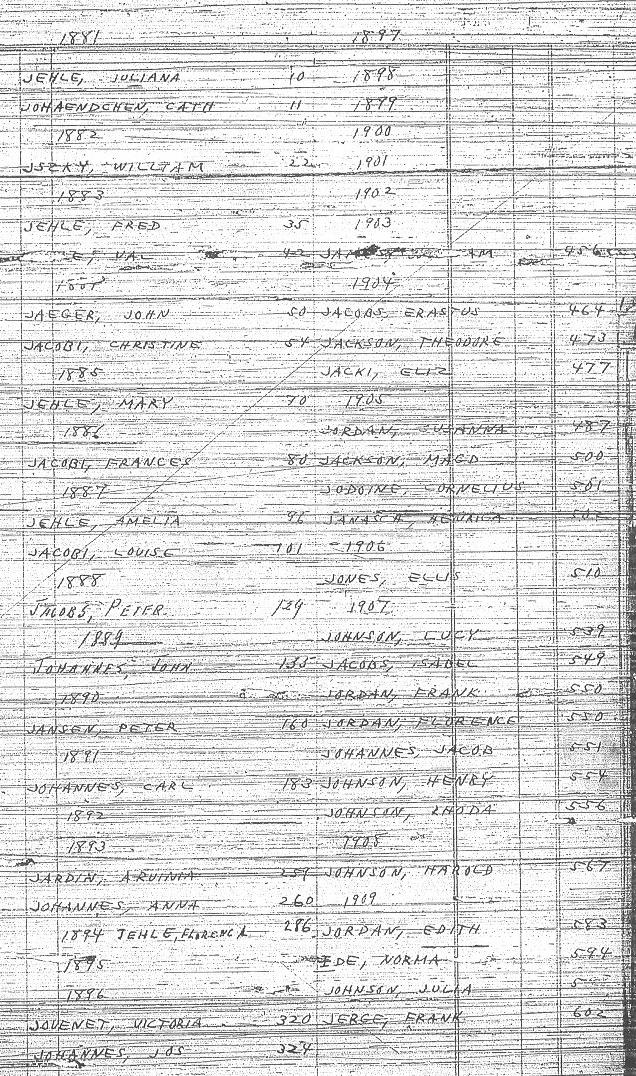 1881
JEHLE, JULIANA 10
JOHAENDCHEN, CATH 11
1882
JSZKY, WILLIAM 22
1883
JEHLE, FRED 35
VAL 42
JAEGER, JOHN 50
JACOBI, CHRISTINE 54
1885
JEHLE, MARY 70
1886
JACOBI, FRANCES 80
1887
JEHLE, AMELIA 96
JACOBI, LOUISE 101
1888
JACOBS, PETER 129
1889
JOHANNES, JOHN 135
1890
JANSEN, PETER 160
1891
JOHANNES, CARL 183
1892
1893
JARDIN, ARVINIA 259
JOHANNES, ANNA 260
1894 JEHLE, FLORENCA 286
1895
1896
JOVENET, VICTORIA 320
JOHANNES, JOS 324
1897
1898
1899
1900
1901
1902
1903
456
1904
JACOBS, ERASTUS 464
JACKSON, THEODORE 473
JACKI, ELIZ 477
1905
JORDAN, SUSANNA 487
JACKSON, MAGD 500
JODOINE, CORNELIUS 501
JANASCH,
1906
JONES, ELLIS 510
1907
JOHNSON, LUCY 539
JACOBS, ISABEL 549
JORDAN, FRANK 550
JORDAN, FLORENCE 550
JOHANNES, JACOB 551
JOHNSON, HENRY 554
JOHNSON, RHODA 556
1908
JOHNSON, HAROLD 567
1909
JORDAN, EDITH 583
IDE, NORMA 594
JOHNSON, JULIA
JERGE, FRANK 602